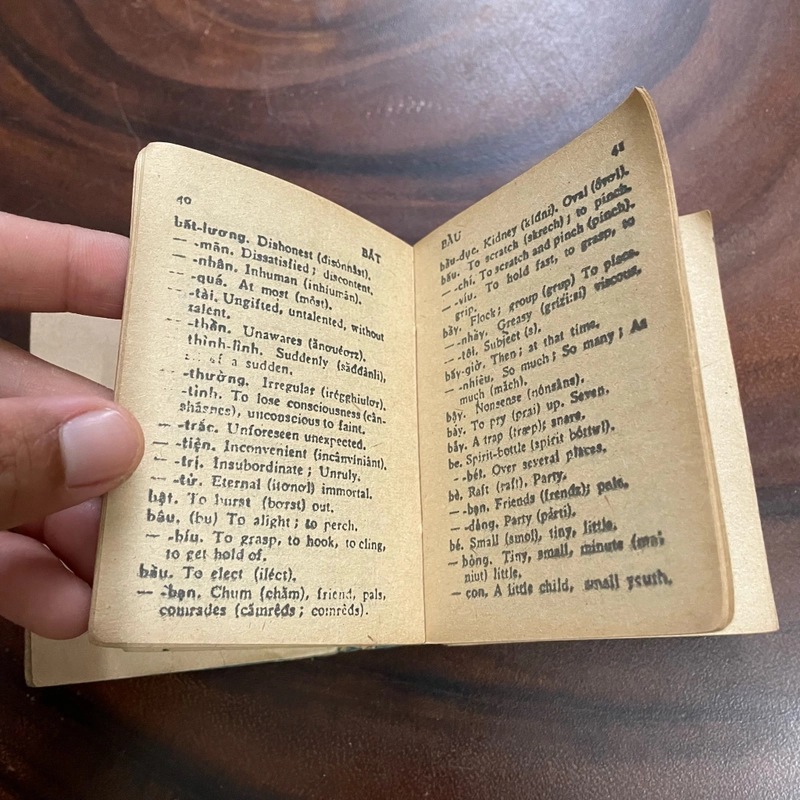 40
BẤT
bất-lương. Dishonest (disónnâst).
— -mãn. Dissatisfied; discontent.
— -nhân. Inhuman (inhiumân).
— -quá. At most (môst).
— -tài. Ungifted, untalented, without
talent.
— -thần. Unawares
thình-lình. Suddenly (sâđđânli),
of a sudden.
— -thường. Irregular
— -tỉnh. To lose consciousness (cân-
unconscious to faint.
— -trắc. Unforeseen unexpected.
— -tiện. Inconvenient (incânviniânt).
— -trị. Insubordinate; Unruly.
— -tử. Eternal (itơnơl) immortal.
bật. To burst (bơrst) out.
bâu. (bu) To alight; to perch.
— -bíu. To grasp, to hook, to cling,
to get hold of.
bầu. To elect (iléct).
— -bạn. Chum (chăm), friend, pals,
comrades (cámrêds; comrêds).
BẦU
41
bầu-dục. Kidney (kídni). Oval (ôvơl).
bấu. To scratch (skrech); to pinch.
— -chí. To scratch and pinch (pinch).
— -víu. To hold fast, to grasp, to
grip.
bầy. Flock; group (grup) To place.
— -nhầy. Greasy (grizi:si) viscous,
— -tôi. Subject (s).
bấy-giờ. Then; at that time,
— -nhiêu. So much; So many; As
much (mâch).
bậy. Nonsense (nónsâns).
bẩy. To pry (prai) up. Seven,
bẫy. A trap (træp); snare.
be. Spirit-bottle (spirit
- -bét. Over several places,
bè. Raft (raft), Party,
— -bạn. Friends (frendz); pals,
— -đảng. Party (párti).
bé. Small (smol), tiny, little,
— -bỏng. Tiny, small, minute (mai
niut) little,
— con, A little child, small youth.